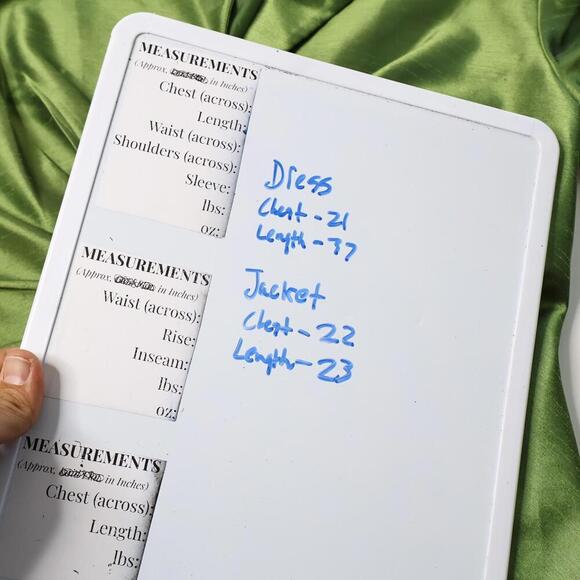 MEASUREMENTS
(Approx. in Inches)
Chest (across):
Length:
Waist (across):
Shoulders (across):
Sleeve:
lbs:
oz:
MEASUREMENTS
(Approx. in Inches)
Waist (across):
Rise:
Inseam:
lbs:
oz:
MEASUREMENTS
(Approx. in Inches)
Chest (across):
Length:
lbs:
Dress
Chest - 21
Length - 37
Jacket
Chest - 22
Length - 23